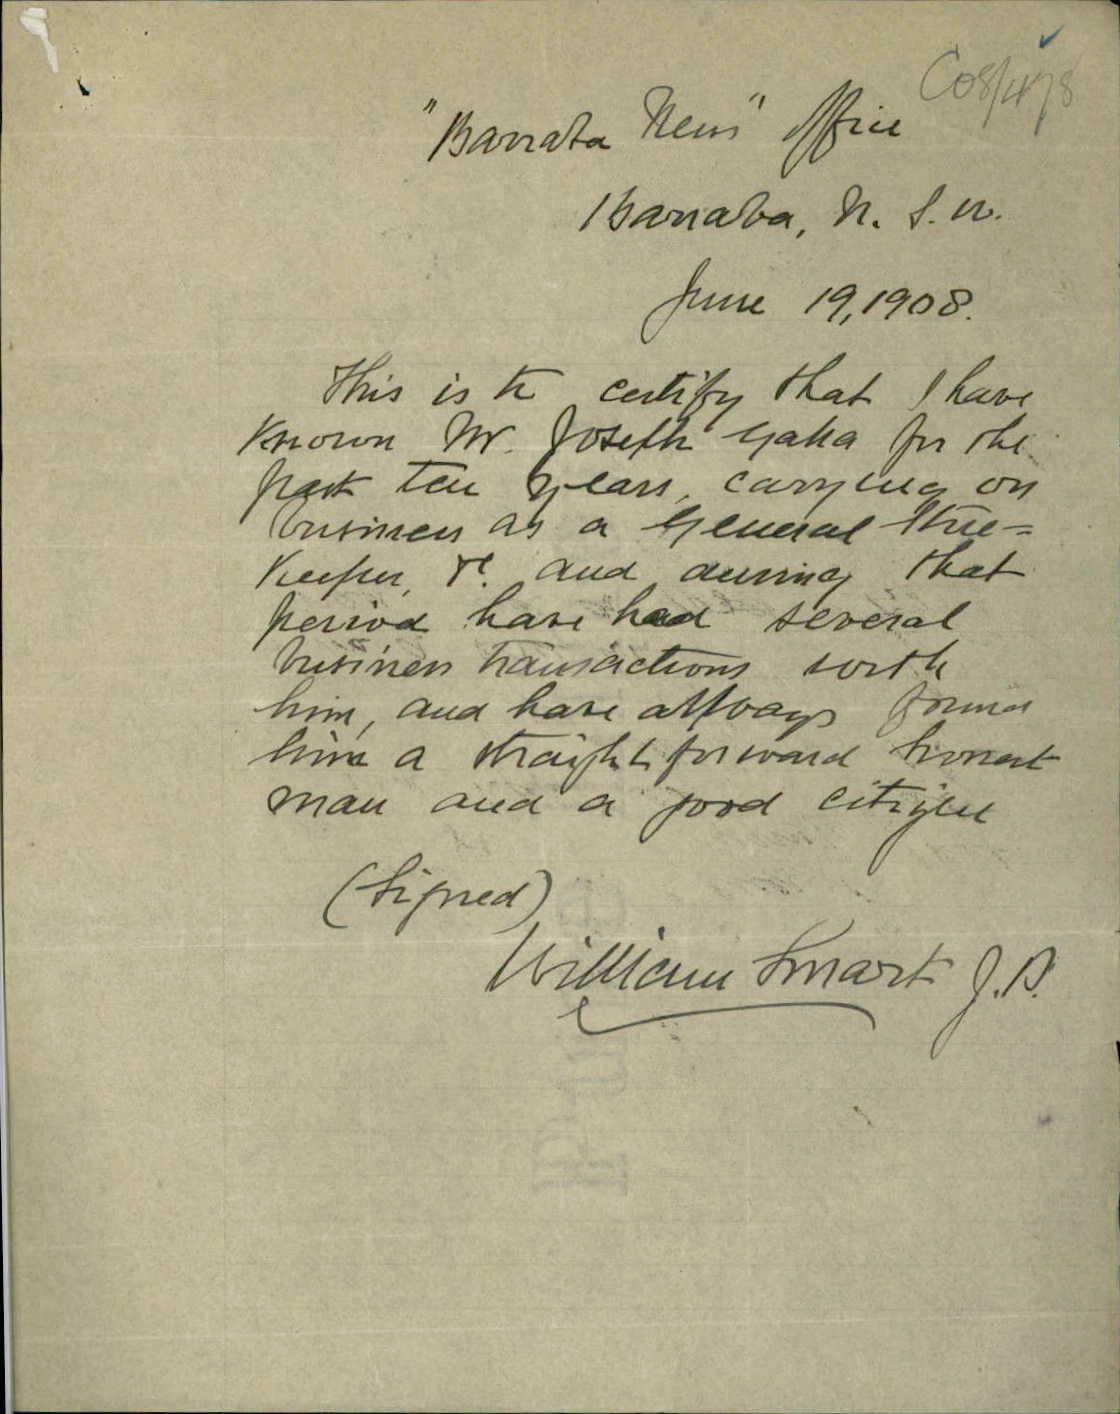 C08/478
"Barraba News" Office
Barraba, N. S. W.
June 19, 1908.
This is to certify that I have
known Mr. Joseph Gaha for the
past ten years, carrying on
business as a General Store-
Keeper, &c. and during that
period have had several
business transactions with
him, and have always found
him a straightforward honest
man and a good citizen
(Signed)
William Smart J.P.